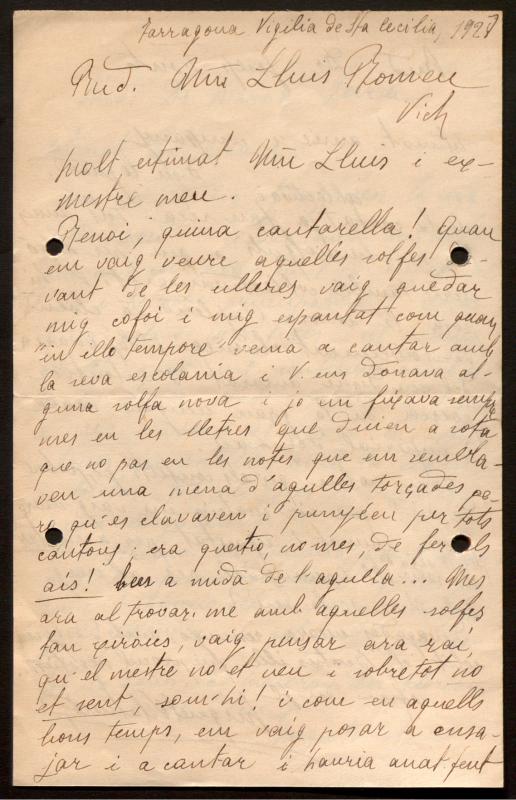 Tarragona Vigilia de Sta Cecilia, 1927
Rnd. Mn Lluis Romeu
Vich
Molt estimat Mn Lluis i ex-
mestre meu.
Renoi, quina cantarella! Quan
em vaig veure aquelles solfes da-
vant de les ulleres vaig quedar
mig cofoi i mig espantat com quan
"in illo tempore" venia a cantar amb
la seva escolania i V. ens donava al-
guna solfa nova i jo em fixava sempre
mes en les lletres que duien a sota
que no pas en les notes que em sembla-
ven una mena d'agulles torçades pe-
ro qu'es clavaven i punyien per tots
cantons; era questio, nomes, de fer els
ais! ben a mida de l'agulla... Mes
ara al trovar-me amb aquelles solfes
tan xiroies, vaig pensar ara rai,
qu'el mestre no et veu i sobretot no
et sent, som-hi! i com en aquells
bons temps, em vaig posar a ensa-
jar i a cantar i hauria anat fent